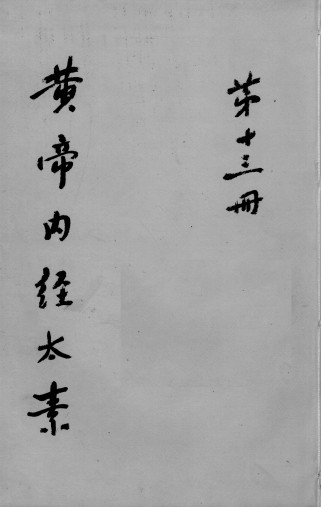 第十三冊
黄帝内経太素